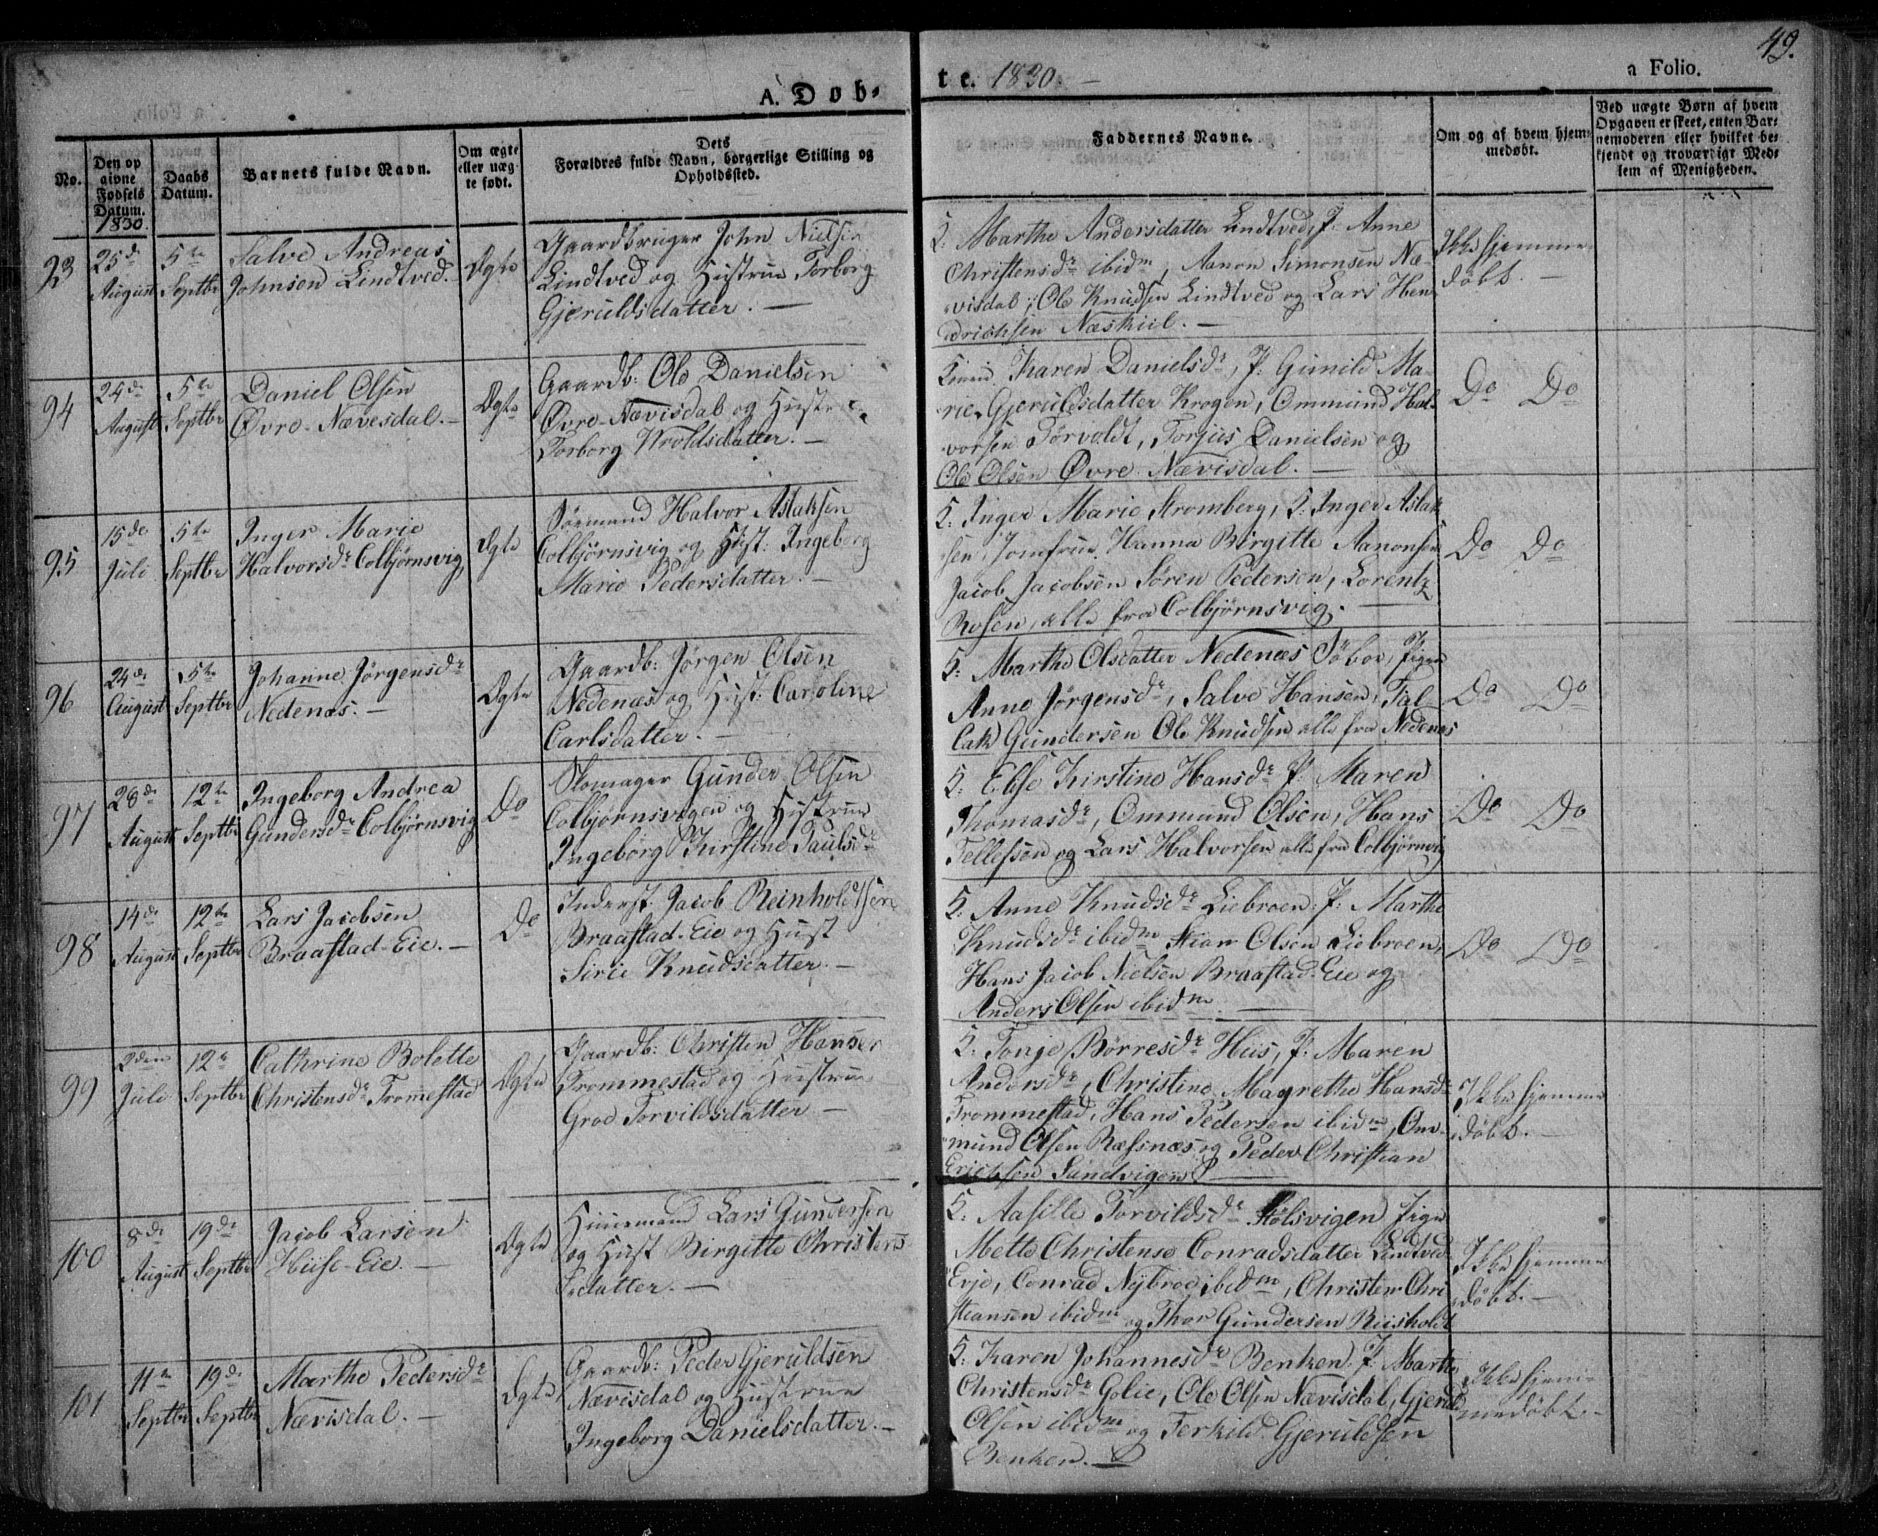 49.
A. Døb-
te. 1830. -
a Folio.
No.
Den op
givne
Fødsels
Datum.
1830.
Daabs
Datum.
Barnets fulde Navn.
Om ægte
eller uæg-
te født.
Dets
Forældres fulde Navn, borgerlige Stilling og
Opholdssted.
Faddernes Navne.
Om og af hvem hjem-
medøbt.
Ved uægte Børn af hvem
Opgaven er skeet, enten Bar-
nemoderen eller hvilket be-
kjendt og troværdigt Med-
lem af Menigheden.
93
25de
August
5te
Septbr
Salve Andreas
Johnsen Lindtved.
Ægte
Gaardbruger John Nielsen
Lindtved og Hustrue Torborg
Gjeruldsdatter. -
K: Marthe Andersdatter Lindtved, P: Anne
Christensdr ibidm, Aanon Simonsen Næ-
visdal, Ole Knudsen Lindtved og Lars Hen-
drichsen Næskiil. -
Ikke hjemme-
døbt. -
94
24de
August
5te
Septbr
Daniel Olsen
Øvre-Nævesdal. -
Ægte
Gaardb: Ole Danielsen
Øvre-Nævisdal og Hustrue
Torborg Wroldsdatter. -
Karen Danielsdr, P: Gunild Ma-
rie Gjeruldsdatter Krogen, Ommund Hal-
vorsen Torvoldt, Torjus Danielsen og
Ole Olsen Øvre Nævisdal. -
Do Do
95
15de
Juli
5te
Septbr
Inger Marie
Halvorsdr Colbjørnsvig
Ægte
Sømand Halvor Aslaksen
Colbjørnsvig og Hust: Ingeborg
Marie Pedersdatter. -
K: Inger Marie Stromberg, K: Inger Aslak-
sen, Jomfrue Hanna Birgitte Aanonsen
Jacob Jacobsen Søren Pedersen, Lorentz
Rosen, alle fra Colbjørnsvig. -
Do Do
96
24de
August
5te
Septbr
Johanne Jørgensdr
Nedenæs. -
Ægte
Gaardb: Jørgen Olsen
Nedenæs og Hust: Caroline
Carlsdatter. -
K: Marthe Olsdatter Nedenæs Søboe, Pigen
Anne Jørgensdr, Salve Hansen, Tal-
lak Gundersen Ole Knudsen alle fra Nedenæs
Do Do
97
28de
August
12te
Septbr
Ingeborg Andrea
Gundersdr Colbjørnsvig
Do
Skomager Gunder Olsen
Colbjørnsvigen og Hustrue
Ingeborg Kirstine Paulsdr
K: Else Kirstine Hansdr P: Maren
Thomasdr, Ommund Olsen, Hans
Tellefsen og Lars Halvorsen alle fra Colbjørnvig
Do Do
98
14de
August
12te
Septbr
Lars Jacobsen
Braastad-Eie. -
Do
Inderst: Jacob Reinholdtsen
Braastad-Eie og Hust
Sirie Knudsdatter. -
K: Anne Knudsdr Liebroen, P: Marthe
Knudsdr ibidm Stian Olsen Liebroen,
Hans Jacob Nielsen Braastad-Eie og
Anders Olsen ibidm -
Do Do
99
2den
Juli
12te
Septbr
Cathrine Bolette
Christensdr Tromestad
Ægte
Gaardb: Christen Hansen
Trommestad og Hustrue
Groe Torvildsdatter -
K: Tonje Børresdr Hiis, P: Maren
Andersdr, Christine Magrethe Hansdr
Trommestad, Hans Pedersen ibidm, Om-
mund Olsen Ræfsnæs og Peder Christian
Erichsen Sandvigen -
Ikke hjemme-
døbt. -
100
8de
August
19de
Septbr
Jacob Larsen
Hiise-Eie. -
Ægte
Huusmand Lars Gundersen
og Hust Birgitte Christens-
datter. -
K: Aasille Torvildsdr Stølsvigen Pigen
Mette Christense Conradsdatter Lindtved
Eeje, Conrad Nybroe ibidm, Christen Chri-
stiansen ibidm og Thor Gundersen Riisholdt
Ikke hjemme-
døbt. -
101
11te
Septbr
19de
Septbr
Marthe Pedersdr
Nævisdal. -
Ægte
Gaardb: Peder Gjeruldsen
Nævisdal og Hustrue
Ingeborg Danielsdatter. -
K: Karen Johannesdr Benken, P: Marthe
Christensdr Golie, Ole Olsen Nævisdal, Gjeruld
Olsen ibidm og Terkild Gjeruldsen
Benken. -
Ikke hjem-
medøbt. -